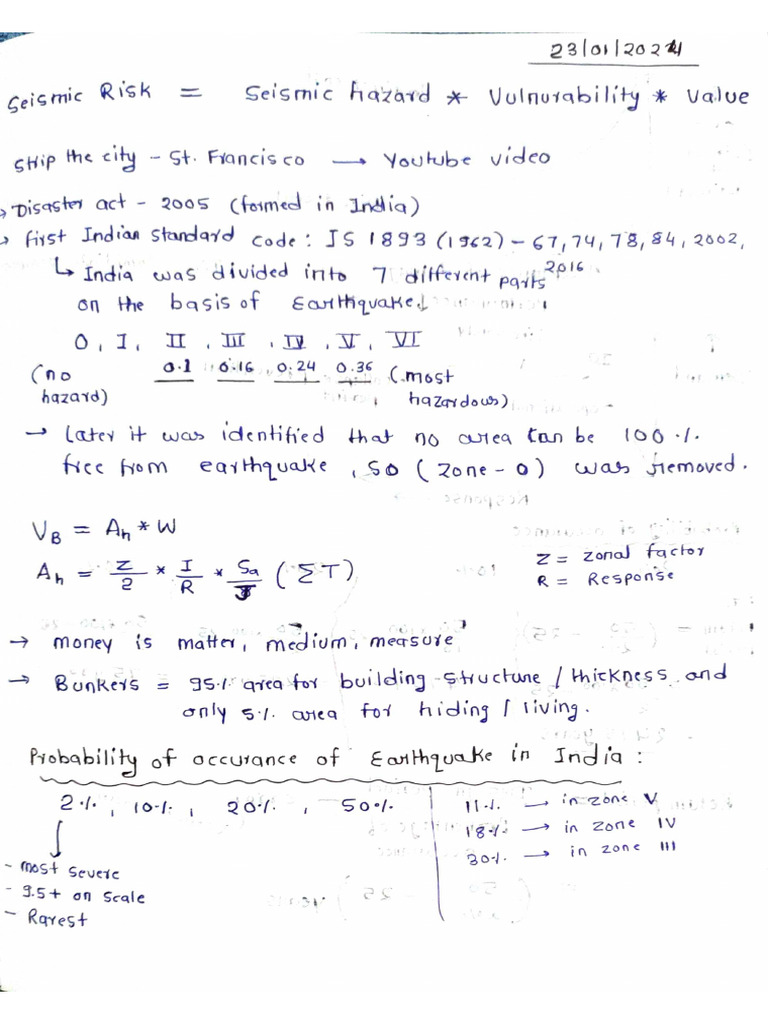 23/01/2024
Seismic Risk = Seismic hazard * Vulnurability * Value
Strip the city - St. Francisco → Youtube video
→ Disaster act - 2005 (formed in India)
→ First Indian Standard code: IS 1893 (1962) - 67, 74, 78, 84, 2002,
2016.
↳ India was divided into 7 different parts
on the basis of Earthquake.
0, I, II, III, IV, V, VI
(no hazard) 0.1 0.16 0.24 0.36 (most hazardous)
→ Later it was identified that no area can be 100 %
free from earthquake, so (zone-0) was removed.
V_B = A_h * W
A_h = Z/2 * I/R * Sa/g (ΣT)
Z = zonal factor
R = Response
→ money is matter, medium, measure
→ Bunkers = 95% area for building structure / thickness and
only 5% area for hiding / living.
Probability of occurance of Earthquake in India:
2%, 10%, 20%, 50%
- most severe
- 9.5+ on scale
- Rarest
11% → in zone V
18% → in zone IV
30% → in zone III